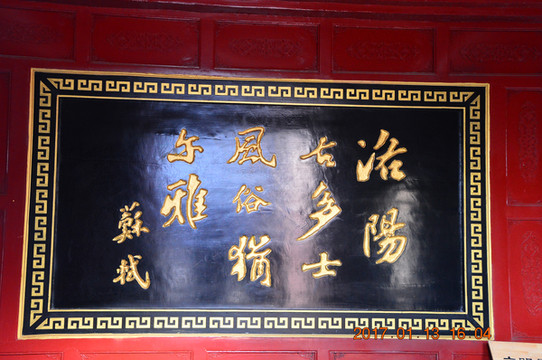 洛陽
古多士
風俗猶
尓雅
蘇軾
2017.01.13 16:04